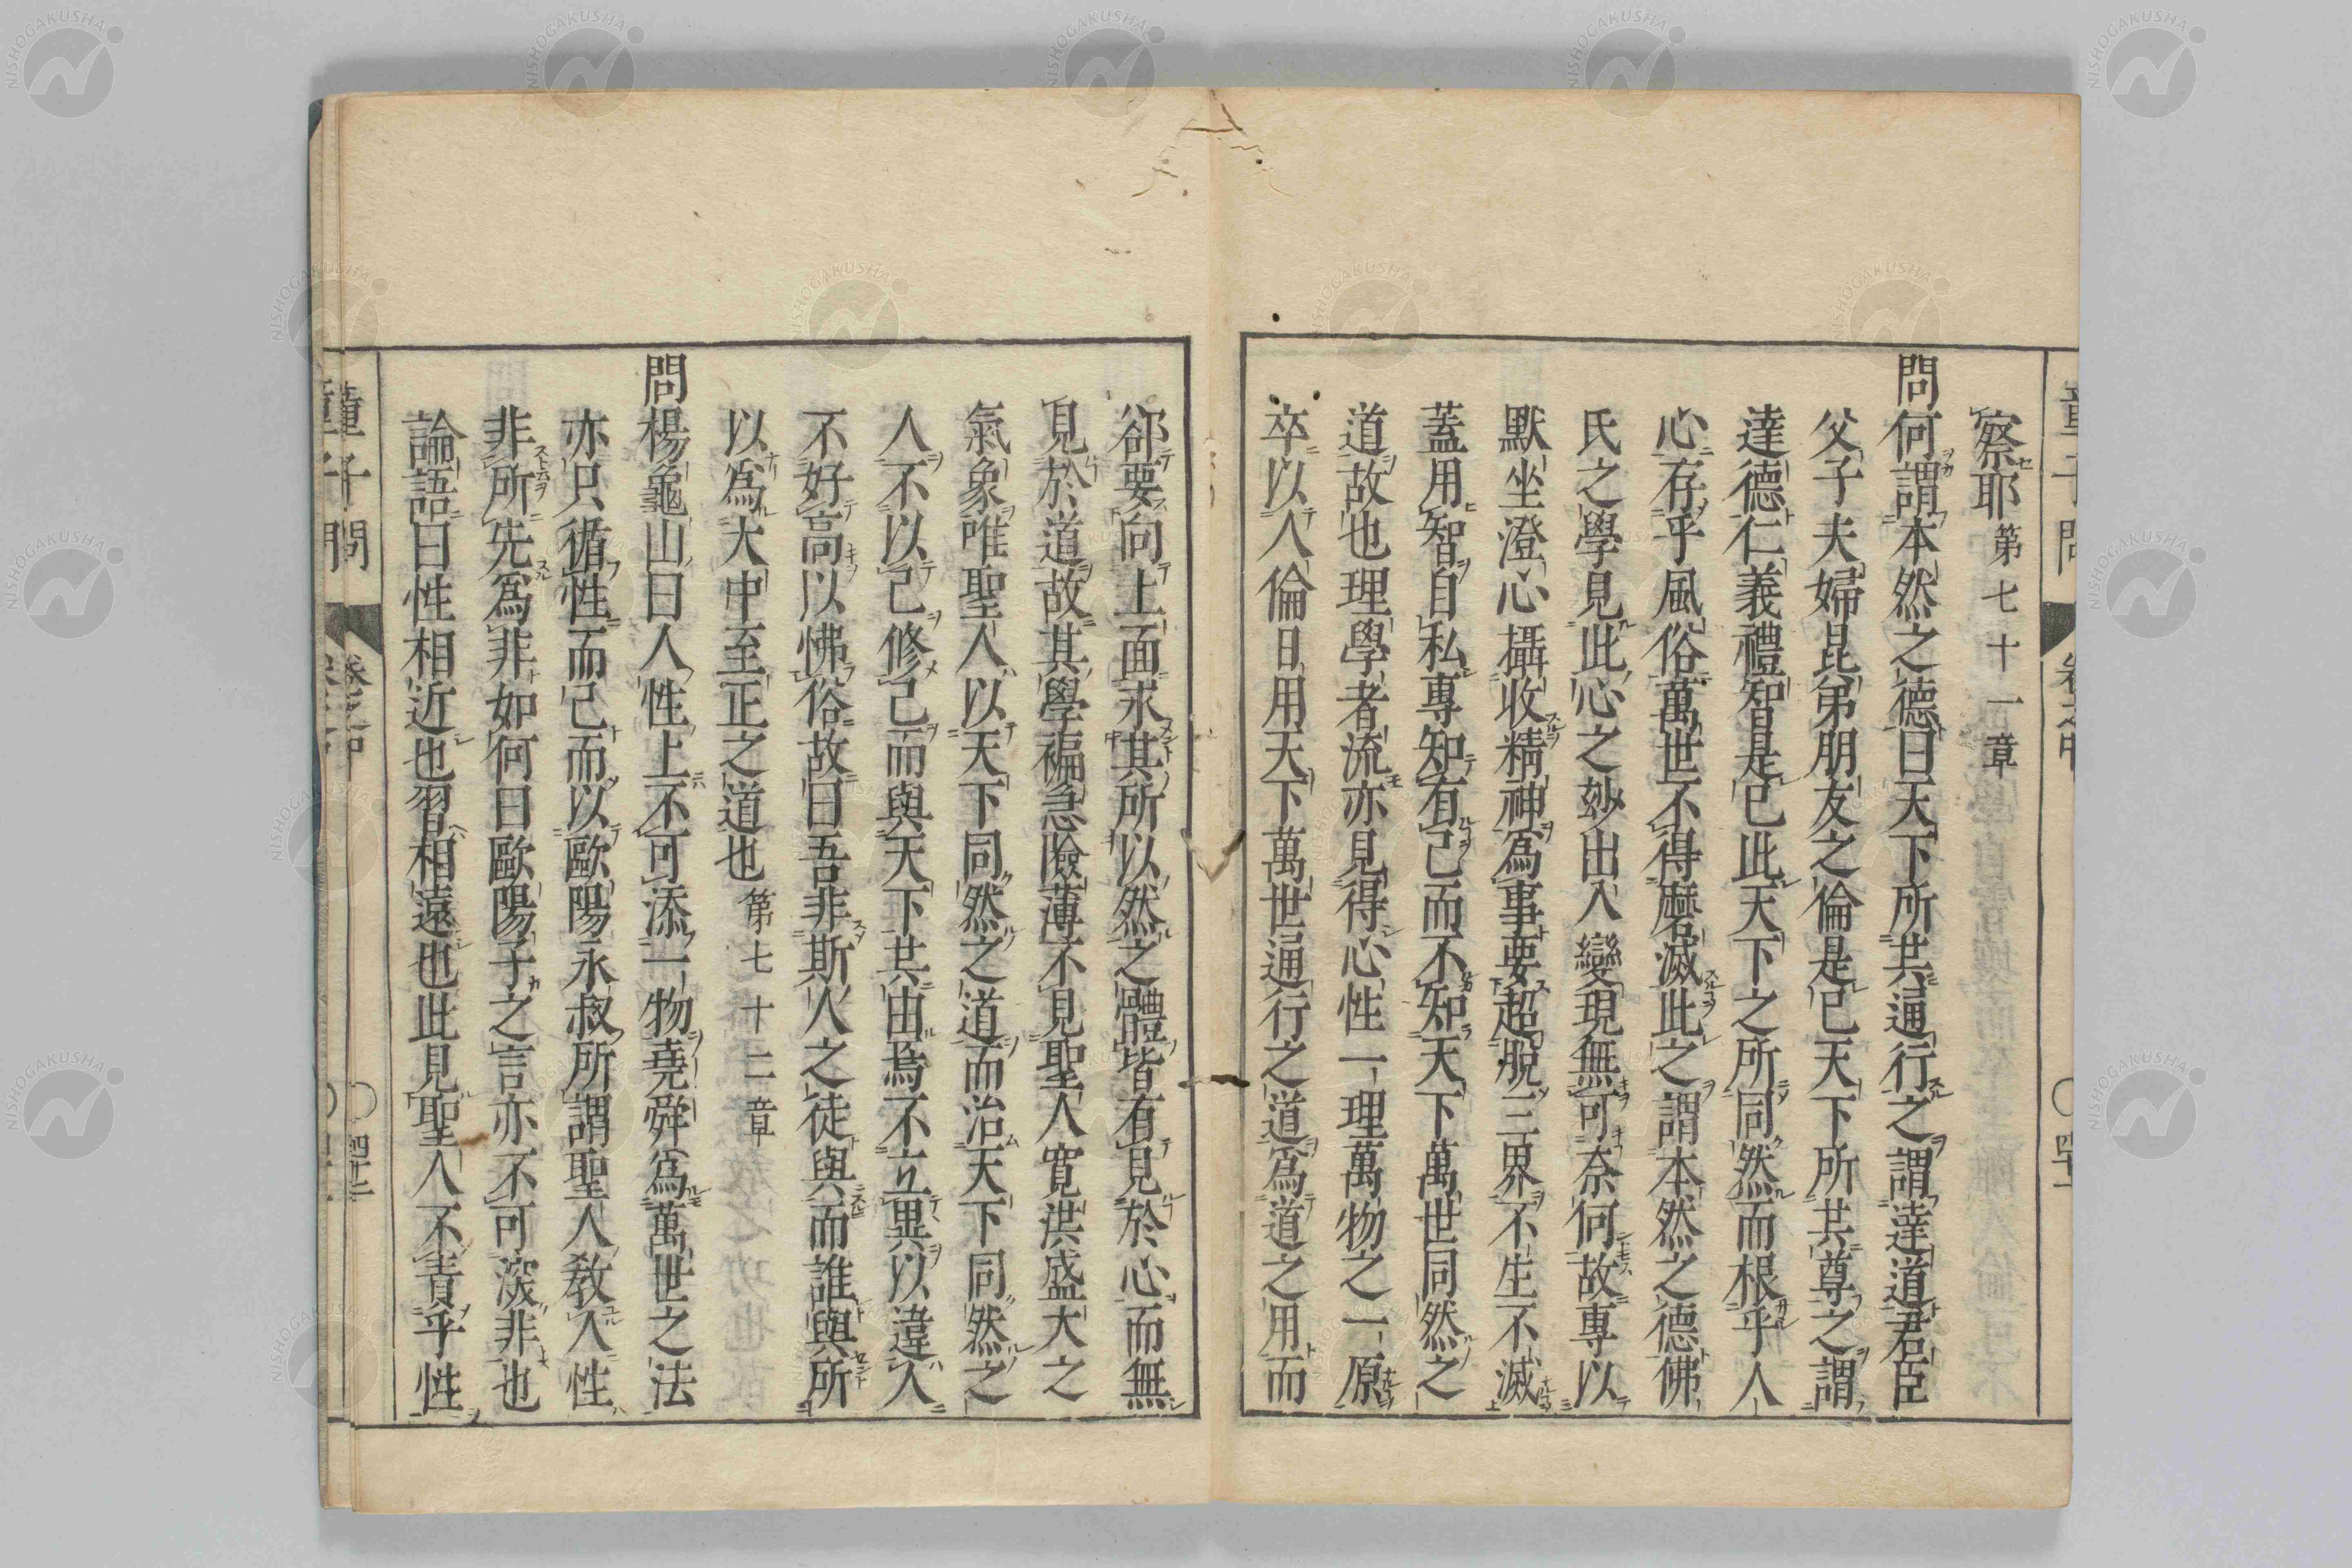 察耶 第七十一章
問何謂本然之德曰天下所共通行之謂達道君臣
父子夫婦昆弟朋友之倫是已天下所共尊之謂
達德仁義禮智是已此天下之所同然而根乎人
心存乎風俗萬世不得磨滅此之謂本然之德佛
氏之學見此心之妙出入變現無可奈何故專以
默坐澄心攝收精神爲事要超脫三界不生不滅
蓋用智自私專知有己而不知天下萬世同然之
道故也理學者流亦見得心性一理萬物之一原
卒以人倫日用天下萬世通行之道爲道之用而
郤要向上面求其所以然之體皆有見於心而無
見於道故其學褊急險薄不見聖人寬洪盛大之
氣象唯聖人以天下同然之道而治天下同然之
人不以己修己而與天下共由焉不立異以違人
不好高以怫俗故曰吾非斯人之徒與而誰與所
以爲大中至正之道也 第七十二章
問楊龜山曰人性上不可添一物堯舜爲萬世之法
亦只循性而已而以歐陽永叔所謂聖人敎人性
非所先爲非如何曰歐陽子之言亦不可深非也
論語曰性相近也習相遠也此見聖人不責乎性
童子問
卷之中
四十二
NISHOGAKUSHA